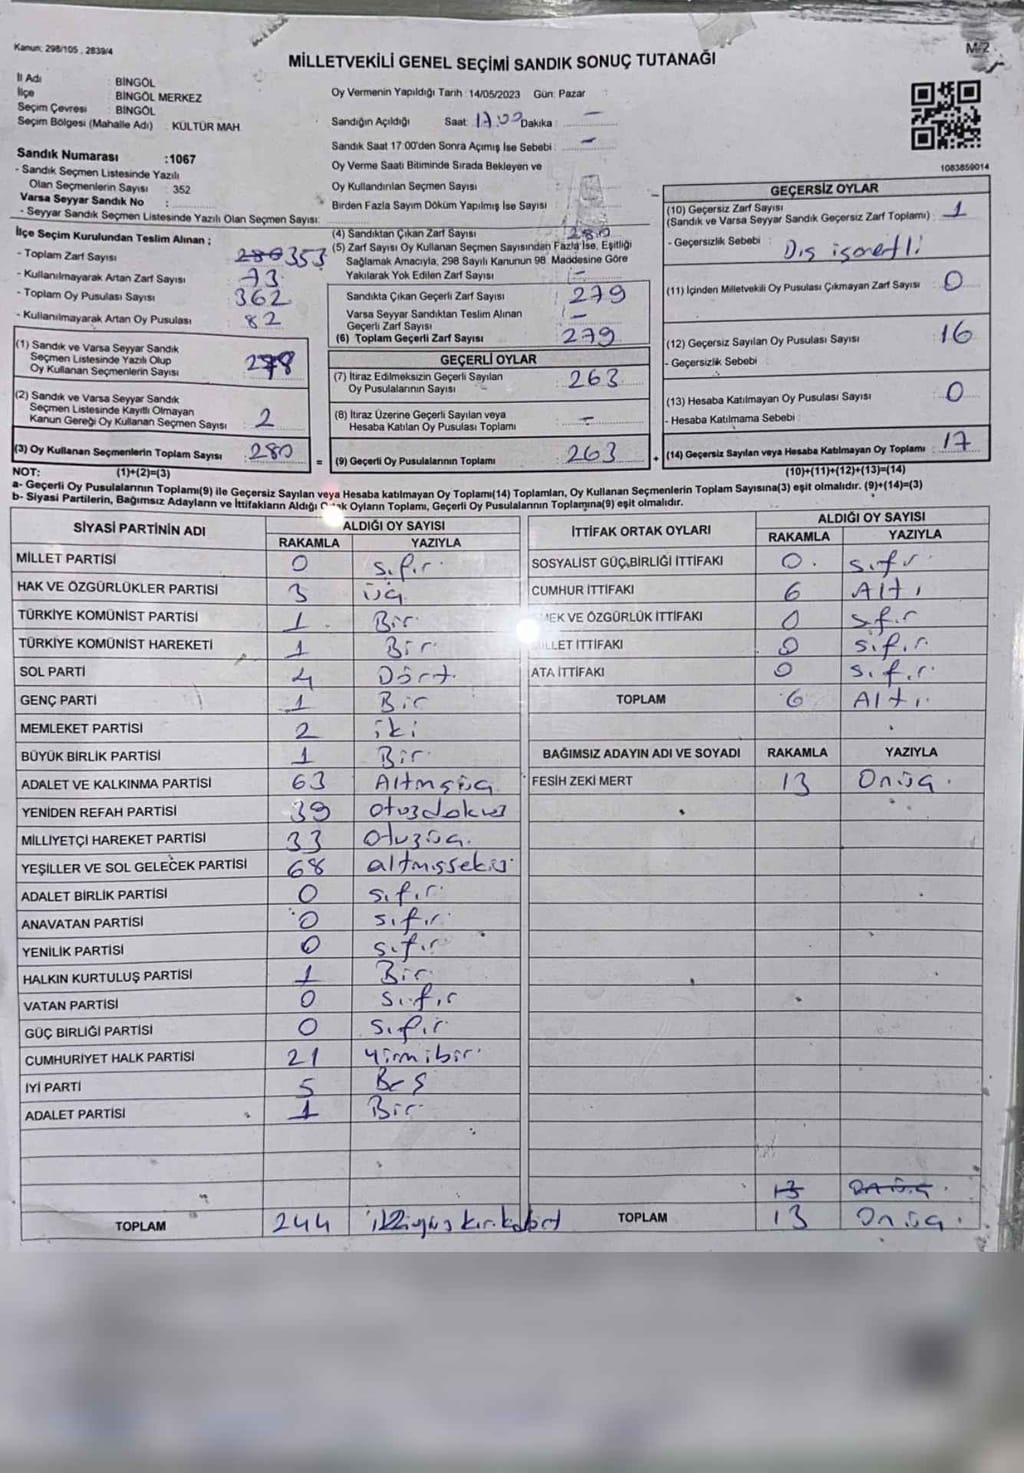 Kanun: 298/105 , 2839/4
M-2
MİLLETVEKİLİ GENEL SEÇİMİ SANDIK SONUÇ TUTANAĞI
İl Adı : BİNGÖL
İlçe : BİNGÖL MERKEZ
Seçim Çevresi : BİNGÖL
Seçim Bölgesi (Mahalle Adı) : KÜLTÜR MAH
Sandık Numarası :1067
- Sandık Seçmen Listesinde Yazılı
Olan Seçmenlerin Sayısı : 352
Varsa Seyyar Sandık No :
- Seyyar Sandık Seçmen Listesinde Yazılı Olan Seçmen Sayısı:
İlçe Seçim Kurulundan Teslim Alınan ;
- Toplam Zarf Sayısı 280 353
- Kullanılmayarak Artan Zarf Sayısı 73
- Toplam Oy Pusulası Sayısı 362
- Kullanılmayarak Artan Oy Pusulası 82
(1) Sandık ve Varsa Seyyar Sandık
Seçmen Listesinde Yazılı Olup
Oy Kullanan Seçmenlerin Sayısı 278
(2) Sandık ve Varsa Seyyar Sandık
Seçmen Listesinde Kayıtlı Olmayan
Kanun Gereği Oy Kullanan Seçmen Sayısı 2
(3) Oy Kullanan Seçmenlerin Toplam Sayısı 280
Oy Vermenin Yapıldığı Tarih :14/05/2023 Gün: Pazar
Sandığın Açıldığı Saat: 17.00 Dakika : –
Sandık Saat 17:00'den Sonra Açımış İse Sebebi : –
Oy Verme Saati Bitiminde Sırada Bekleyen ve
Oy Kullandırılan Seçmen Sayısı :
Birden Fazla Sayım Döküm Yapılmış İse Sayısı :
(4) Sandıktan Çıkan Zarf Sayısı : 280
(5) Zarf Sayısı Oy Kullanan Seçmen Sayısından Fazla İse, Eşitliği
Sağlamak Amacıyla, 298 Sayılı Kanunun 98 Maddesine Göre
Yakılarak Yok Edilen Zarf Sayısı : –
Sandıkta Çıkan Geçerli Zarf Sayısı : 279
Varsa Seyyar Sandıktan Teslim Alınan
Geçerli Zarf Sayısı : –
(6) Toplam Geçerli Zarf Sayısı : 279
GEÇERLİ OYLAR
(7) İtiraz Edilmeksizin Geçerli Sayılan
Oy Pusulalarının Sayısı : 263
(8) İtiraz Üzerine Geçerli Sayılan veya
Hesaba Katılan Oy Pusulası Toplamı : –
= (9) Geçerli Oy Pusulalarının Toplamı : 263
1083859014
GEÇERSİZ OYLAR
(10) Geçersiz Zarf Sayısı
(Sandık ve Varsa Seyyar Sandık Geçersiz Zarf Toplamı) : 1
- Geçersizlik Sebebi : Dış işaretli
(11) İçinden Milletvekili Oy Pusulası Çıkmayan Zarf Sayısı : 0
(12) Geçersiz Sayılan Oy Pusulası Sayısı : 16
- Geçersizlik Sebebi :
(13) Hesaba Katılmayan Oy Pusulası Sayısı : 0
- Hesaba Katılmama Sebebi :
+ (14) Geçersiz Sayılan veya Hesaba Katılmayan Oy Toplamı : 17
NOT: (1)+(2)=(3) (10)+(11)+(12)+(13)=(14)
a- Geçerli Oy Pusulalarının Toplamı(9) ile Geçersiz Sayılan veya Hesaba katılmayan Oy Toplamı(14) Toplamları, Oy Kullanan Seçmenlerin Toplam Sayısına(3) eşit olmalıdır. (9)+(14)=(3)
b- Siyasi Partilerin, Bağımsız Adayların ve İttifakların Aldığı Ortak Oyların Toplamı, Geçerli Oy Pusulalarının Toplamına(9) eşit olmalıdır.
SİYASİ PARTİNİN ADI ALDIĞI OY SAYISI
RAKAMLA YAZIYLA
MİLLET PARTİSİ 0 sıfır
HAK VE ÖZGÜRLÜKLER PARTİSİ 3 üç
TÜRKİYE KOMÜNİST PARTİSİ 1 Bir
TÜRKİYE KOMÜNİST HAREKETİ 1 Bir
SOL PARTİ 4 Dört
GENÇ PARTİ 1 Bir
MEMLEKET PARTİSİ 2 iki
BÜYÜK BİRLİK PARTİSİ 1 Bir
ADALET VE KALKINMA PARTİSİ 63 Altmışüç
YENİDEN REFAH PARTİSİ 39 otuzdokuz
MİLLİYETÇİ HAREKET PARTİSİ 33 otuzüç
YEŞİLLER VE SOL GELECEK PARTİSİ 68 altmışsekiz
ADALET BİRLİK PARTİSİ 0 sıfır
ANAVATAN PARTİSİ 0 sıfır
YENİLİK PARTİSİ 0 sıfır
HALKIN KURTULUŞ PARTİSİ 1 Bir
VATAN PARTİSİ 0 sıfır
GÜÇ BİRLİĞİ PARTİSİ 0 sıfır
CUMHURİYET HALK PARTİSİ 21 yirmibir
İYİ PARTİ 5 Beş
ADALET PARTİSİ 1 Bir
TOPLAM 244 ikiyüzkırkdört
İTTİFAK ORTAK OYLARI ALDIĞI OY SAYISI
RAKAMLA YAZIYLA
SOSYALİST GÜÇBİRLİĞİ İTTİFAKI 0 sıfır
CUMHUR İTTİFAKI 6 Altı
EMEK VE ÖZGÜRLÜK İTTİFAKI 0 sıfır
MİLLET İTTİFAKI 0 sıfır
ATA İTTİFAKI 0 sıfır
TOPLAM 6 Altı
BAĞIMSIZ ADAYIN ADI VE SOYADI RAKAMLA YAZIYLA
FESİH ZEKİ MERT 13 Onüç
13 Onüç
TOPLAM 13 Onüç